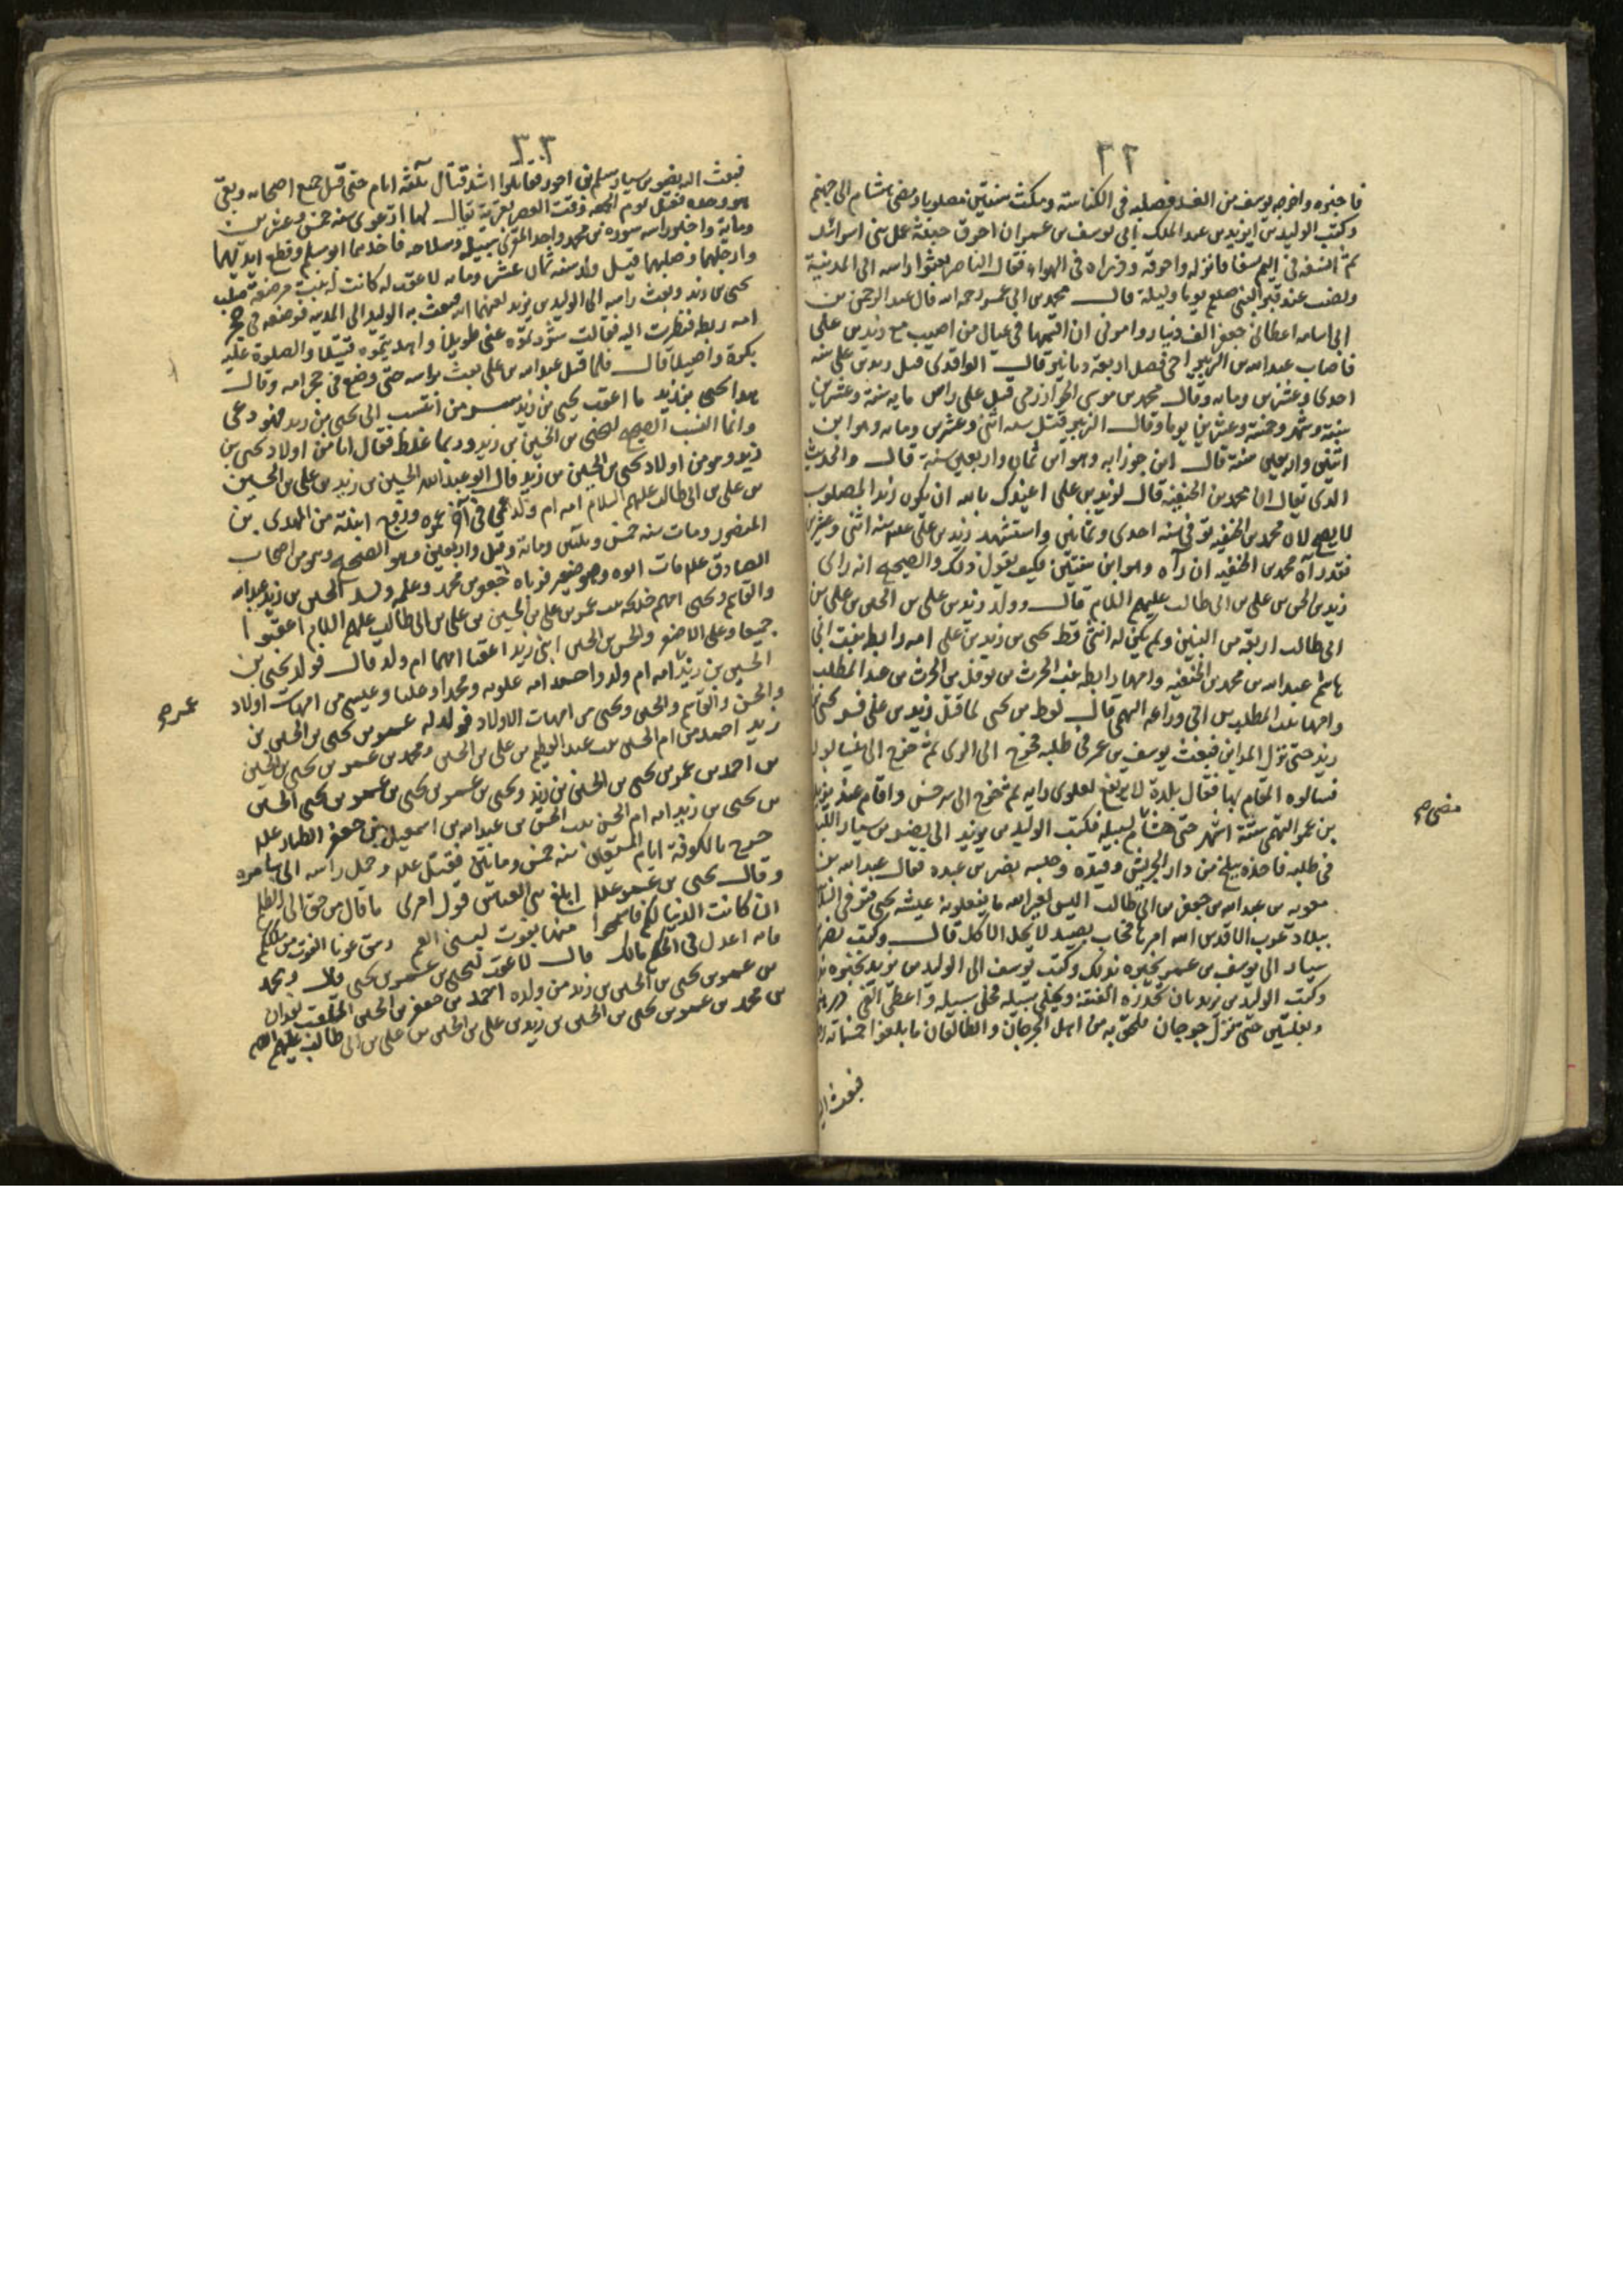 ٣٢
فاخبره واخرجه يوسف من الغد فصلبه في الكناسة ومكث سنتين مصلوبا ومضى هشام الى جهنم
وكتب الوليد بن يزيد بن عبد الملك الى يوسف بن عمر ان احرق عجل بني اسرائيل
ثم انسفه في اليم نسفا فانزله واحرقه وذراه في الهواء فقال الناصر بعثوا راسه الى المدينة
ونصب عند قبر النبي صلعم يوما وليلة قال محمد بن ابي عمير رحمه الله قال عبد الرحمن بن
ابي سيابه اعطاني جعفر الف دينار وامرني ان اقسمها في عيال من اصيب مع زيد بن علي
فاصاب عبد الله بن الزبير اخي فضيل اربعة دنانير قال الواقدي قتل زيد بن علي سنه
احدى وعشرين ومايه وقال محمد بن موسى الخوارزمي قتل على راس مايه سنة وعشرين
سنة وشهر وخمسة وعشرين يوما وقال الزبير قتل سنه اثنى وعشرين ومايه وهو ابن
اثنين واربعين سنة قال ابن خوزابه وهو ابن ثمان واربعين سنة قال والحديث
الذي يقال ان محمد بن الحنفيه قال لزيد بن علي اعيذك بالله ان يكون زيد المصلوب
لا يصح لان محمد بن الحنفيه توفي سنه احدى وثمانين واستشهد زيد بن علي علم سنه اثنى وعشرين
فقد رآه محمد بن الحنفيه ان رآه وهو ابن سنتين فكيف يقول ذلك والصحيح انه راى
زيد بن الحسن بن علي بن ابي طالب عليهم السلام قال وولد زيد بن علي بن الحسين بن علي بن
ابي طالب اربعة من البنين ولم يكن له انثى قط يحيى بن زيد بن علي امه رابطه بنت ابي
هاشم عبد الله بن محمد بن الحنفيه وامها رابطه بنت الحرث بن نوفل بن الحرث بن عبد المطلب
وامها بنت المطلب بن ابي وداعه السهمي قال لوط بن يحيى لما قتل زيد بن علي يحيى بن
زيد حتى نزل المداين فبعث يوسف بن عمر في طلبه فخرج الى الري ثم خرج الى نيسابور
فسالوه المقام بها فقال بلدة لا يرتفع لعلوي رايه ثم خرج الى سرخس واقام عند يزيد
بن عمر التيمي ستة اشهر حتى هشام لسبيله فكتب الوليد بن يزيد الى نصر بن سيار الليثي
في طلبه فاخذه ببلخ من دار الجريش وقيده وحبسه نصر بن عبده فقال عبد الله بن
معويه بن عبد الله بن جعفر بن ابي طالب اليس بعين الله ما يفعلونه عيشه يحيى موثق في السلاسل
وكتب نصر بن
سيار الى يوسف بن عمر يخبره بذلك وكتب يوسف الى الوليد بن يزيد يخبره
وكتب الوليد بن يزيد بان يحذره الفتنة ويخلي سبيله فخلى سبيله واعطى الفي درهم
وبغلتين حتى نزل جوجان فلحق به من اهل الجرجان والطالقان ما بلغوا خمسمائه
فبعث اليه
مضى صح
٣٣
فبعث اليه نصر بن سيار سلم بن احور فقاتلوا اشد قتال ثلثة ايام حتى قتل جميع اصحابه وبقى
هو وحده فقتل يوم الجمعه وقت العصر بقرية يقال لها ارعوى سنه خمس وعشرين
وماية واخذ راسه سوره بن محمد واخذ العنزي سلبه وسلاحه فاخذهما ابو مسلم وقطع ايديهما
وارجلهما وصلبهما قتل وله سنه ثمان عشر ومايه لا عقب له كانت له بنت مرضعة صلب
يحيى بن زيد وبعث راسه الى الوليد بن يزيد لعنهما الله فبعث به الوليد الى المدينه فوضعه في حجر
امه ريطه فنظرت اليه فقالت شردتموه عني طويلا واهديتموه قتيلا والصلوة عليه
بكرة واصيلا قال فلما قتل عبد الله بن علي بعث براسه حتى وضع في حجر امه وقال
هذا يحيى بن زيد ما اعقب يحيى بن زيد من انتسب الى يحيى بن زيد فهو دعي
وانما النسب الصحيح ليحيى بن الحسين بن زيد وربما غلط فقال انا من اولاد يحيى بن
زيد وهو من اولاد يحيى بن الحسين بن زيد قال ابو عبد الله الحسين بن زيد بن علي بن الحسين
بن علي بن ابي طالب عليهم السلام امه ام ولد عمي في آخر عمره وزوج ابنته من المهدي بن
المنصور ومات سنه خمس وثلثين وماية وقيل واربعين وهو الصحيح وهو من اصحاب
الصادق علم مات ابوه وهو صغير فرباه جعفر بن محمد وعلمه ولد الحسين بن زيد عبد الله
والقاسم ويحيى امهم خديجه بنت عمر بن علي بن الحسين بن علي بن ابي طالب عليهم السلام اعقبوا
جميعا وعلي الاصغر والحسن بن الحسين ابني زيد اعقبا امهما ام ولد قال فولد يحيى بن
الحسين بن زيد امه ام ولد واحمد امه علويه ومحمدا وعليا وعيسى من امهات اولاد
والحسن والقاسم والحسين ويحيى من امهات الاولاد فولد له عمر بن يحيى بن الحسين بن
زيد احمد من ام الحسين بنت عبد العظيم بن علي بن الحسين ومحمد بن عمر بن يحيى بن الحسين
بن احمد بن عمر بن يحيى بن الحسين بن زيد ويحيى بن عمر بن يحيى بن عمر بن يحيى الحسين
بن يحيى بن زيد امه ام الحسن بنت الحسن بن عبد الله بن اسمعيل بن جعفر الطيار علم
خرج بالكوفة ايام المستعين سنه خمس ومايتين فقتل علم وحمل راسه الى سامره
وقال يحيى بن عمر علم ابلغ بني العباس قول امرئ ما قال من حق الى الظلم
ان كانت الدنيا لكم فاسمحوا منها بقوت لبني العم
فانه اعدل في الحكم مالك قال لا عقب ليحيى بن عمر بن يحيى قال ومحمد
بن عمر بن يحيى بن الحسين بن زيد من ولده احمد بن جعفر بن الحسين الملقب
بن محمد بن عمر بن يحيى بن الحسين بن زيد بن علي بن الحسين بن علي بن ابي طالب عليهم السلام
عمر صح